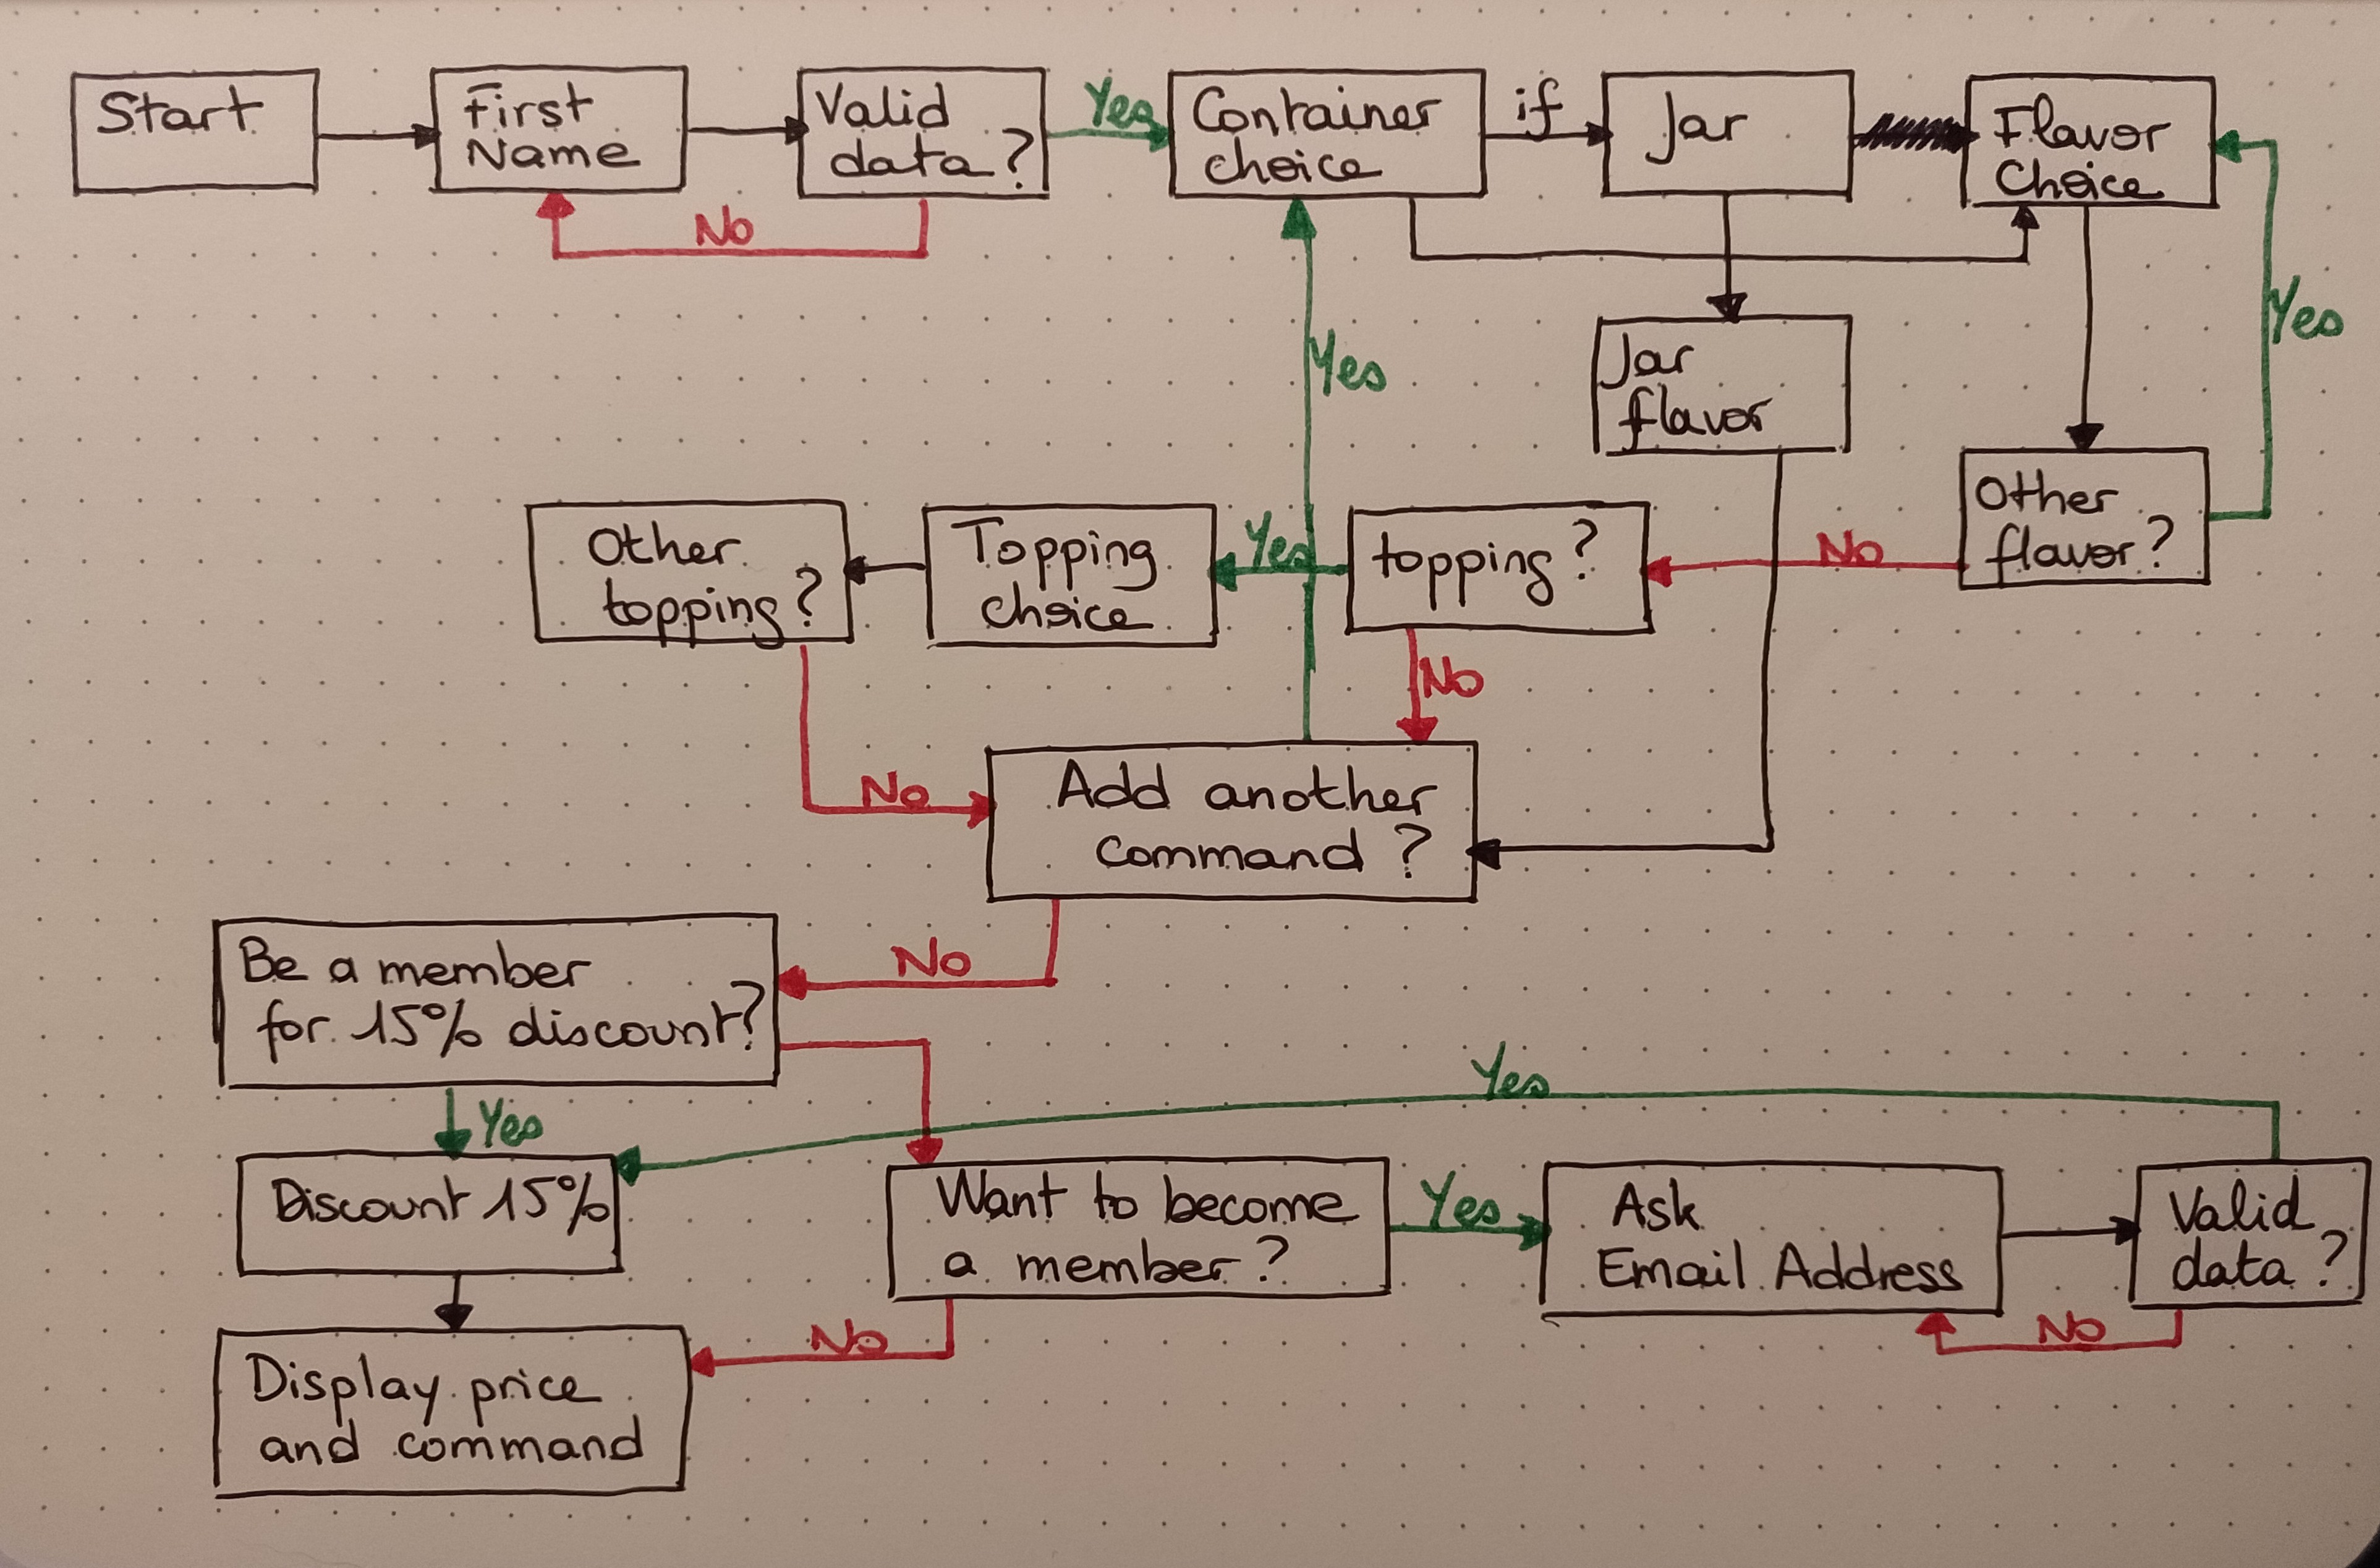 Start
First
Name
Valid
data?
Yes
Container
choice
if
Jar
Flavor
Choice
No
Yes
Yes
Jar
flavor
Other
topping?
Topping
choice
Yes
topping?
No
Other
flavor?
No
No
Add another
command?
No
Be a member
for 15% discount?
Yes
Yes
Discount 15%
Want to become
a member?
Yes
Ask
Email Address
Valid
data?
No
No
Display price
and command